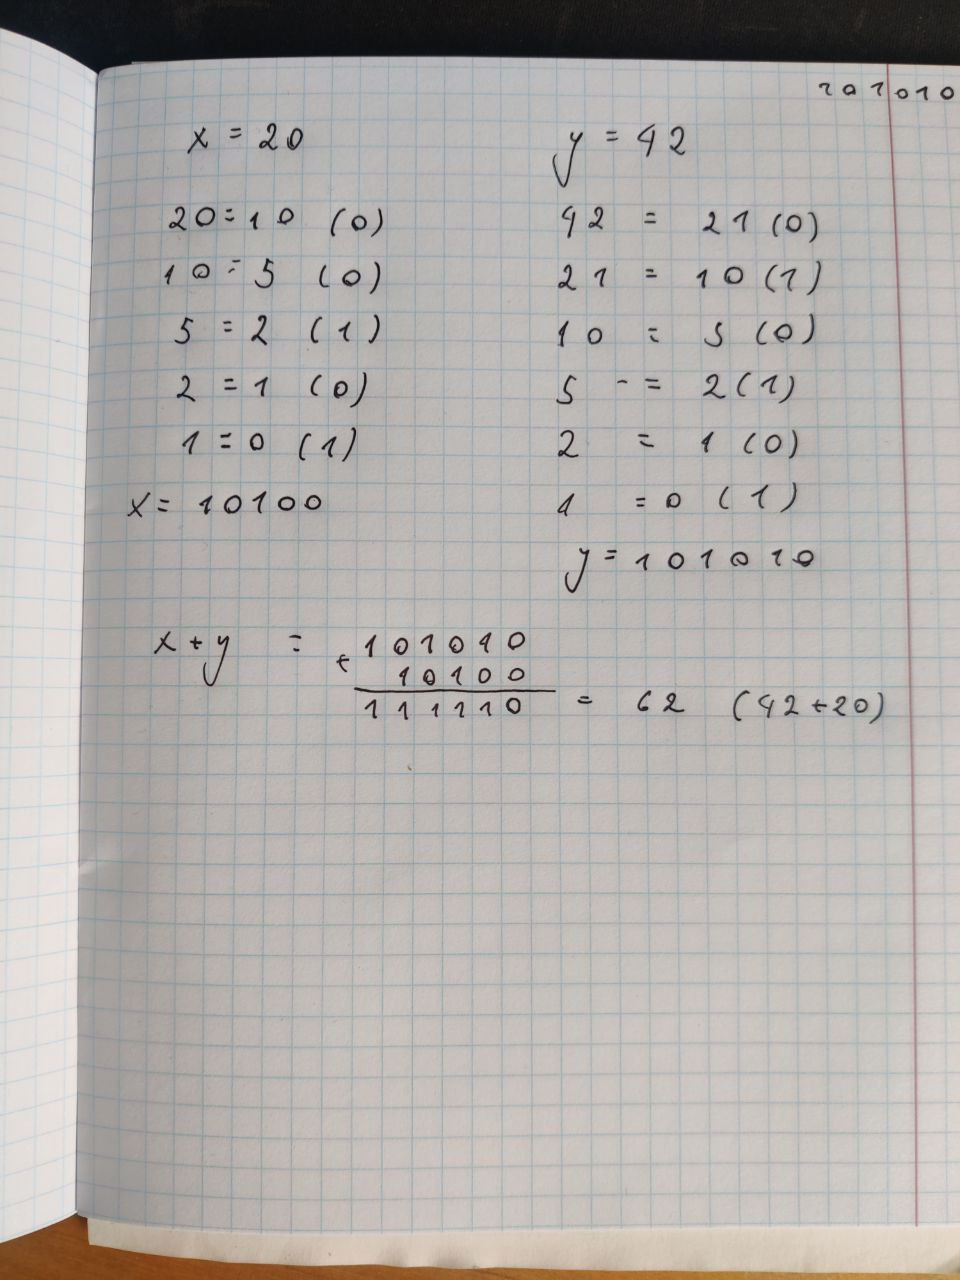 101010
x = 20
20 = 10 (0)
10 = 5 (0)
5 = 2 (1)
2 = 1 (0)
1 = 0 (1)
x = 10100
y = 42
42 = 21 (0)
21 = 10 (1)
10 = 5 (0)
5 -= 2 (1)
2 = 1 (0)
1 = 0 (1)
y = 101010
x + y = 101010
+ 10100
111110 = 62 (42 + 20)